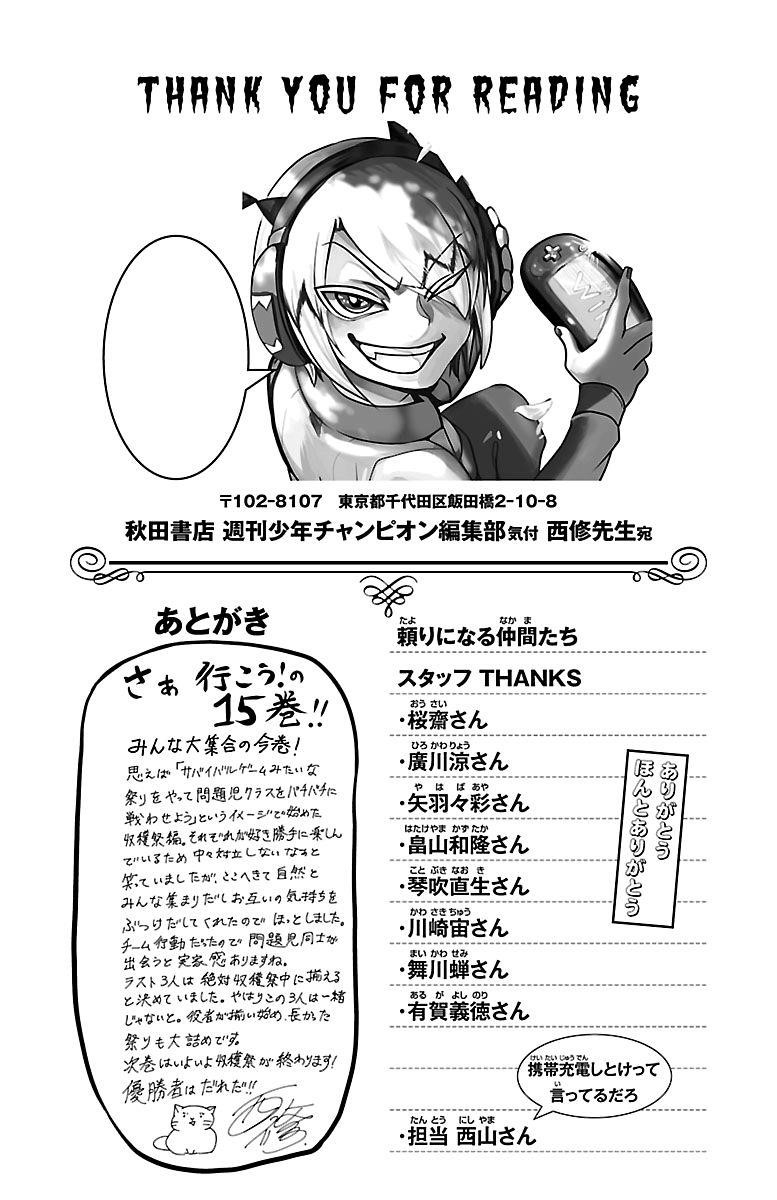 THANK YOU FOR READING
WIN
〒102-8107　東京都千代田区飯田橋2-10-8
秋田書店 週刊少年チャンピオン編集部気付 西修先生宛
あとがき
さぁ 行こう!の
15巻!!
みんな大集合の今巻!
思えば「サバイバルゲームみたいな
祭りをやって問題児クラスをバチバチに
戦わせよう」というイメージで始めた
収穫祭編。それぞれが好き勝手に楽しん
でいるため 中々対立しないなぁと
笑っていましたが、ここへきて自然と
みんな集まりだしお互いの気持ちを
ぶつけだしてくれたので ほっとしました。
チーム行動だったので 問題児同士が
出会うと実家感ありますね。
ラスト3人は 絶対収穫祭中に揃える
と決めていました。やはりこの3人は一緒
じゃないと。役者が揃い始め、長かった
祭りも大詰めです。
次巻はいよいよ収穫祭が終わります!
優勝者はだれだ!!
頼りになる仲間たち
たよ なかま
スタッフ THANKS
・桜齋さん
おうさい
・廣川涼さん
ひろかわりょう
・矢羽々彩さん
やはばあや
・畠山和隆さん
はたけやま かずたか
・琴吹直生さん
ことぶきなおき
・川崎宙さん
かわさきちゅう
・舞川蝉さん
まいかわせみ
・有賀義徳さん
あるがよしのり
ありがとう
ほんとありがとう
携帯充電しとけって
けいたいじゅうでん
言ってるだろ
い
・担当 西山さん
たんとう にしやま